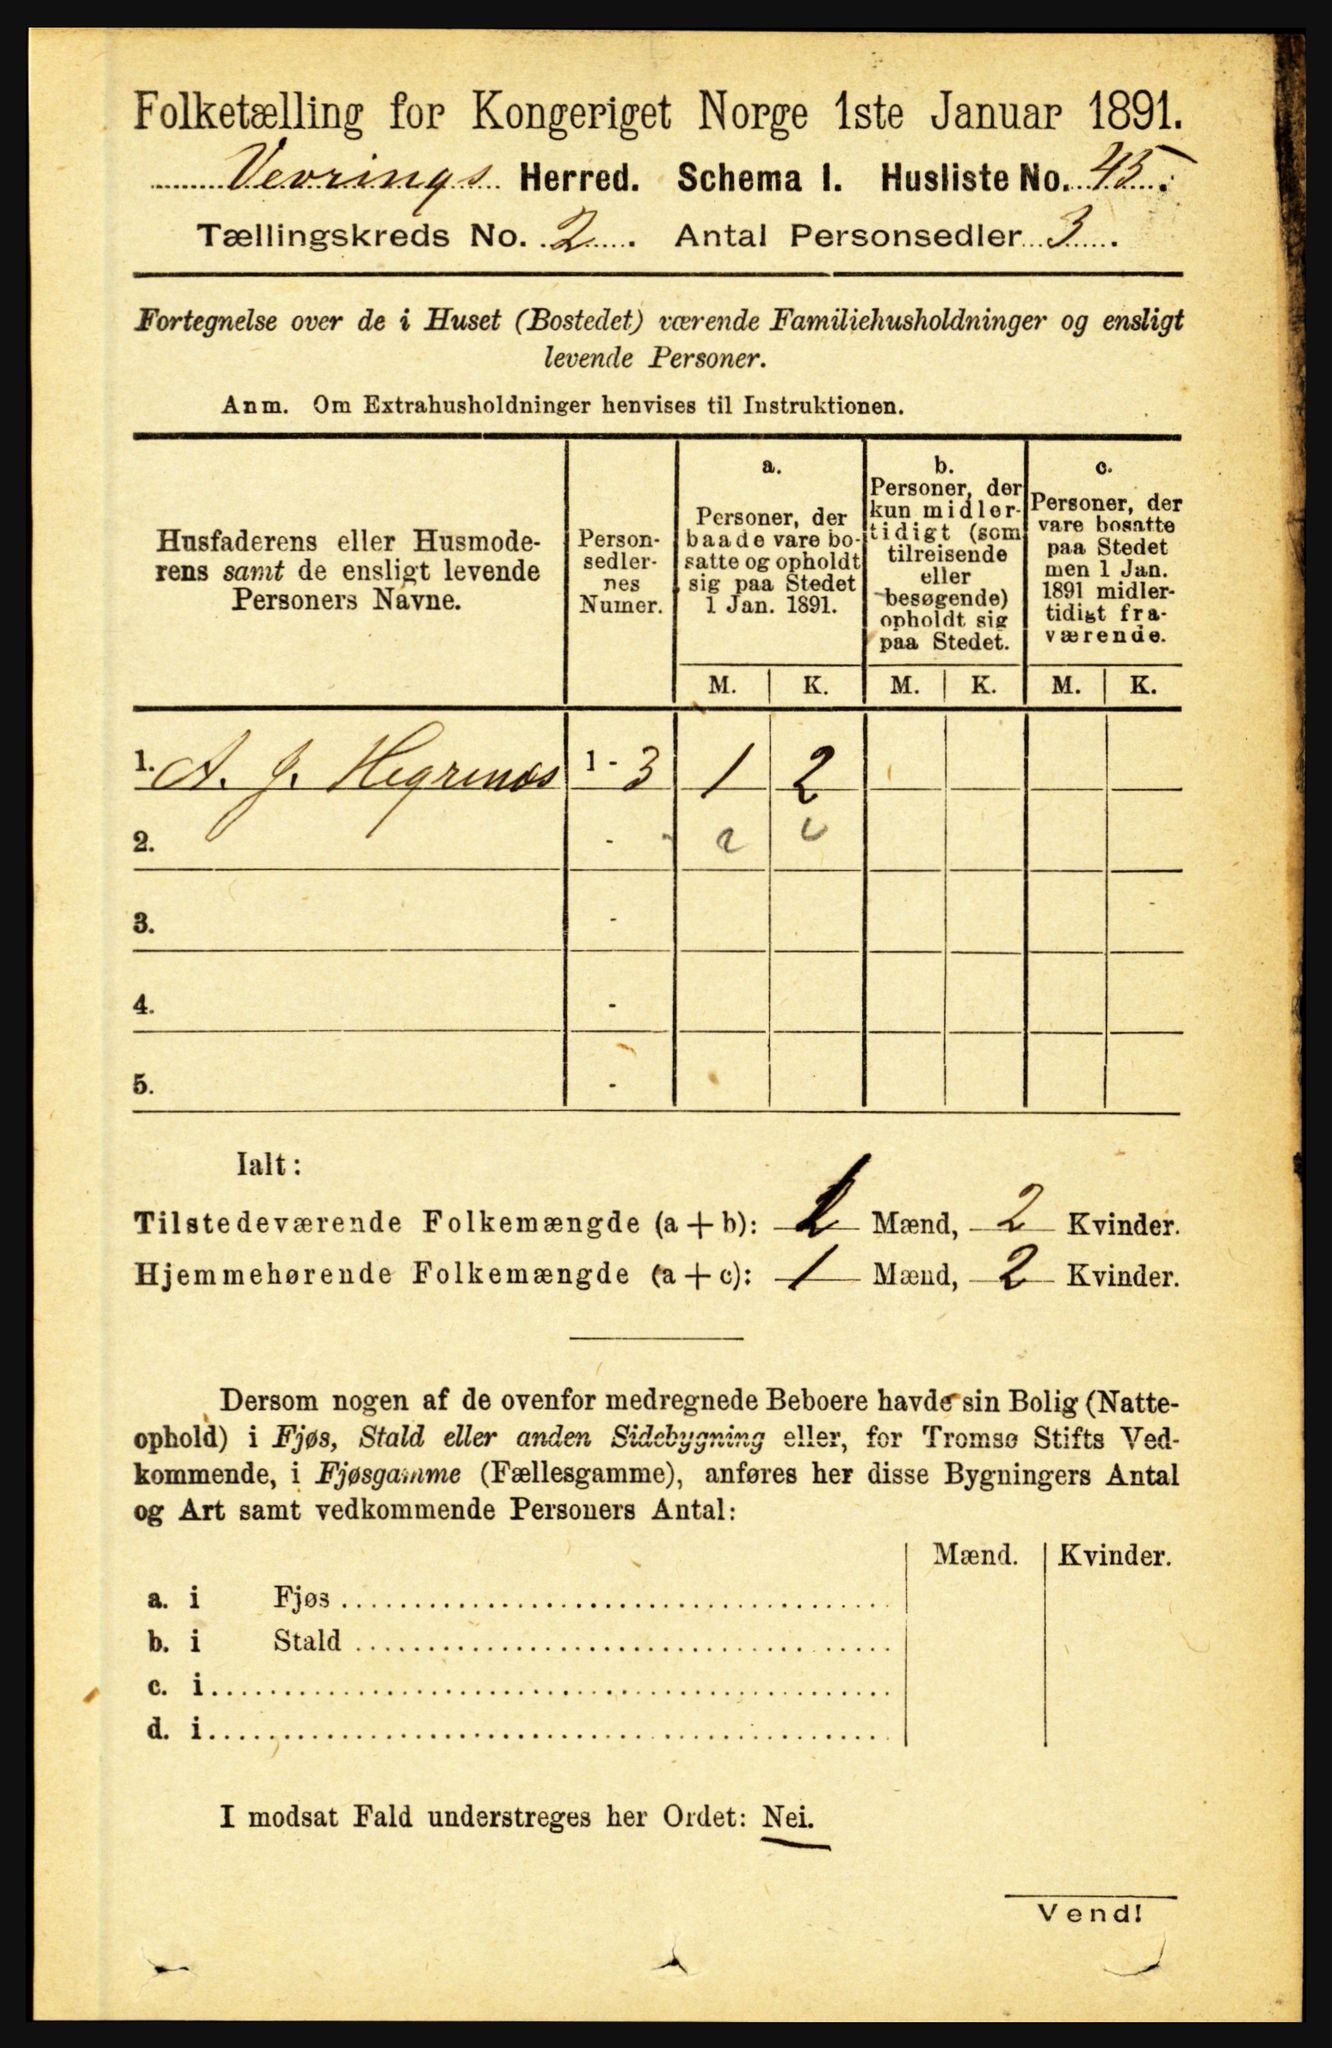 Folketælling for Kongeriget Norge 1ste Januar 1891.
Vevrings Herred. Schema I. Husliste No. 45.
Tællingskreds No. 2. Antal Personsedler 3.
Fortegnelse over de i Huset (Bostedet) værende Familiehusholdninger og ensligt
levende Personer.
Anm. Om Extrahusholdninger henvises til Instruktionen.
Husfaderens eller Husmode-
rens samt de ensligt levende
Personers Navne.
Person-
sedler-
nes
Numer.
a.
Personer, der
baade vare bo-
satte og opholdt
sig paa Stedet
1 Jan. 1891.
b.
Personer, der
kun midler-
tidigt (som
tilreisende
eller
besøgende)
opholdt sig
paa Stedet.
c.
Personer, der
vare bosatte
paa Stedet
men 1 Jan.
1891 midler-
tidigt fra-
værende.
M. K. M. K. M. K.
1. A. J. Hegrenæs 1 - 3 1 2
2. -
3. -
4. -
5. -
Ialt:
Tilstedeværende Folkemængde (a + b): 1 Mænd, 2 Kvinder.
Hjemmehørende Folkemængde (a + c): 1 Mænd, 2 Kvinder.
Dersom nogen af de ovenfor medregnede Beboere havde sin Bolig (Natte-
ophold) i Fjøs, Stald eller anden Sidebygning eller, for Tromsø Stifts Ved-
kommende, i Fjøsgamme (Fællesgamme), anføres her disse Bygningers Antal
og Art samt vedkommende Personers Antal:
Mænd. Kvinder.
a. i Fjøs
b. i Stald
c. i
d. i
I modsat Fald understreges her Ordet: Nei.
Vend!